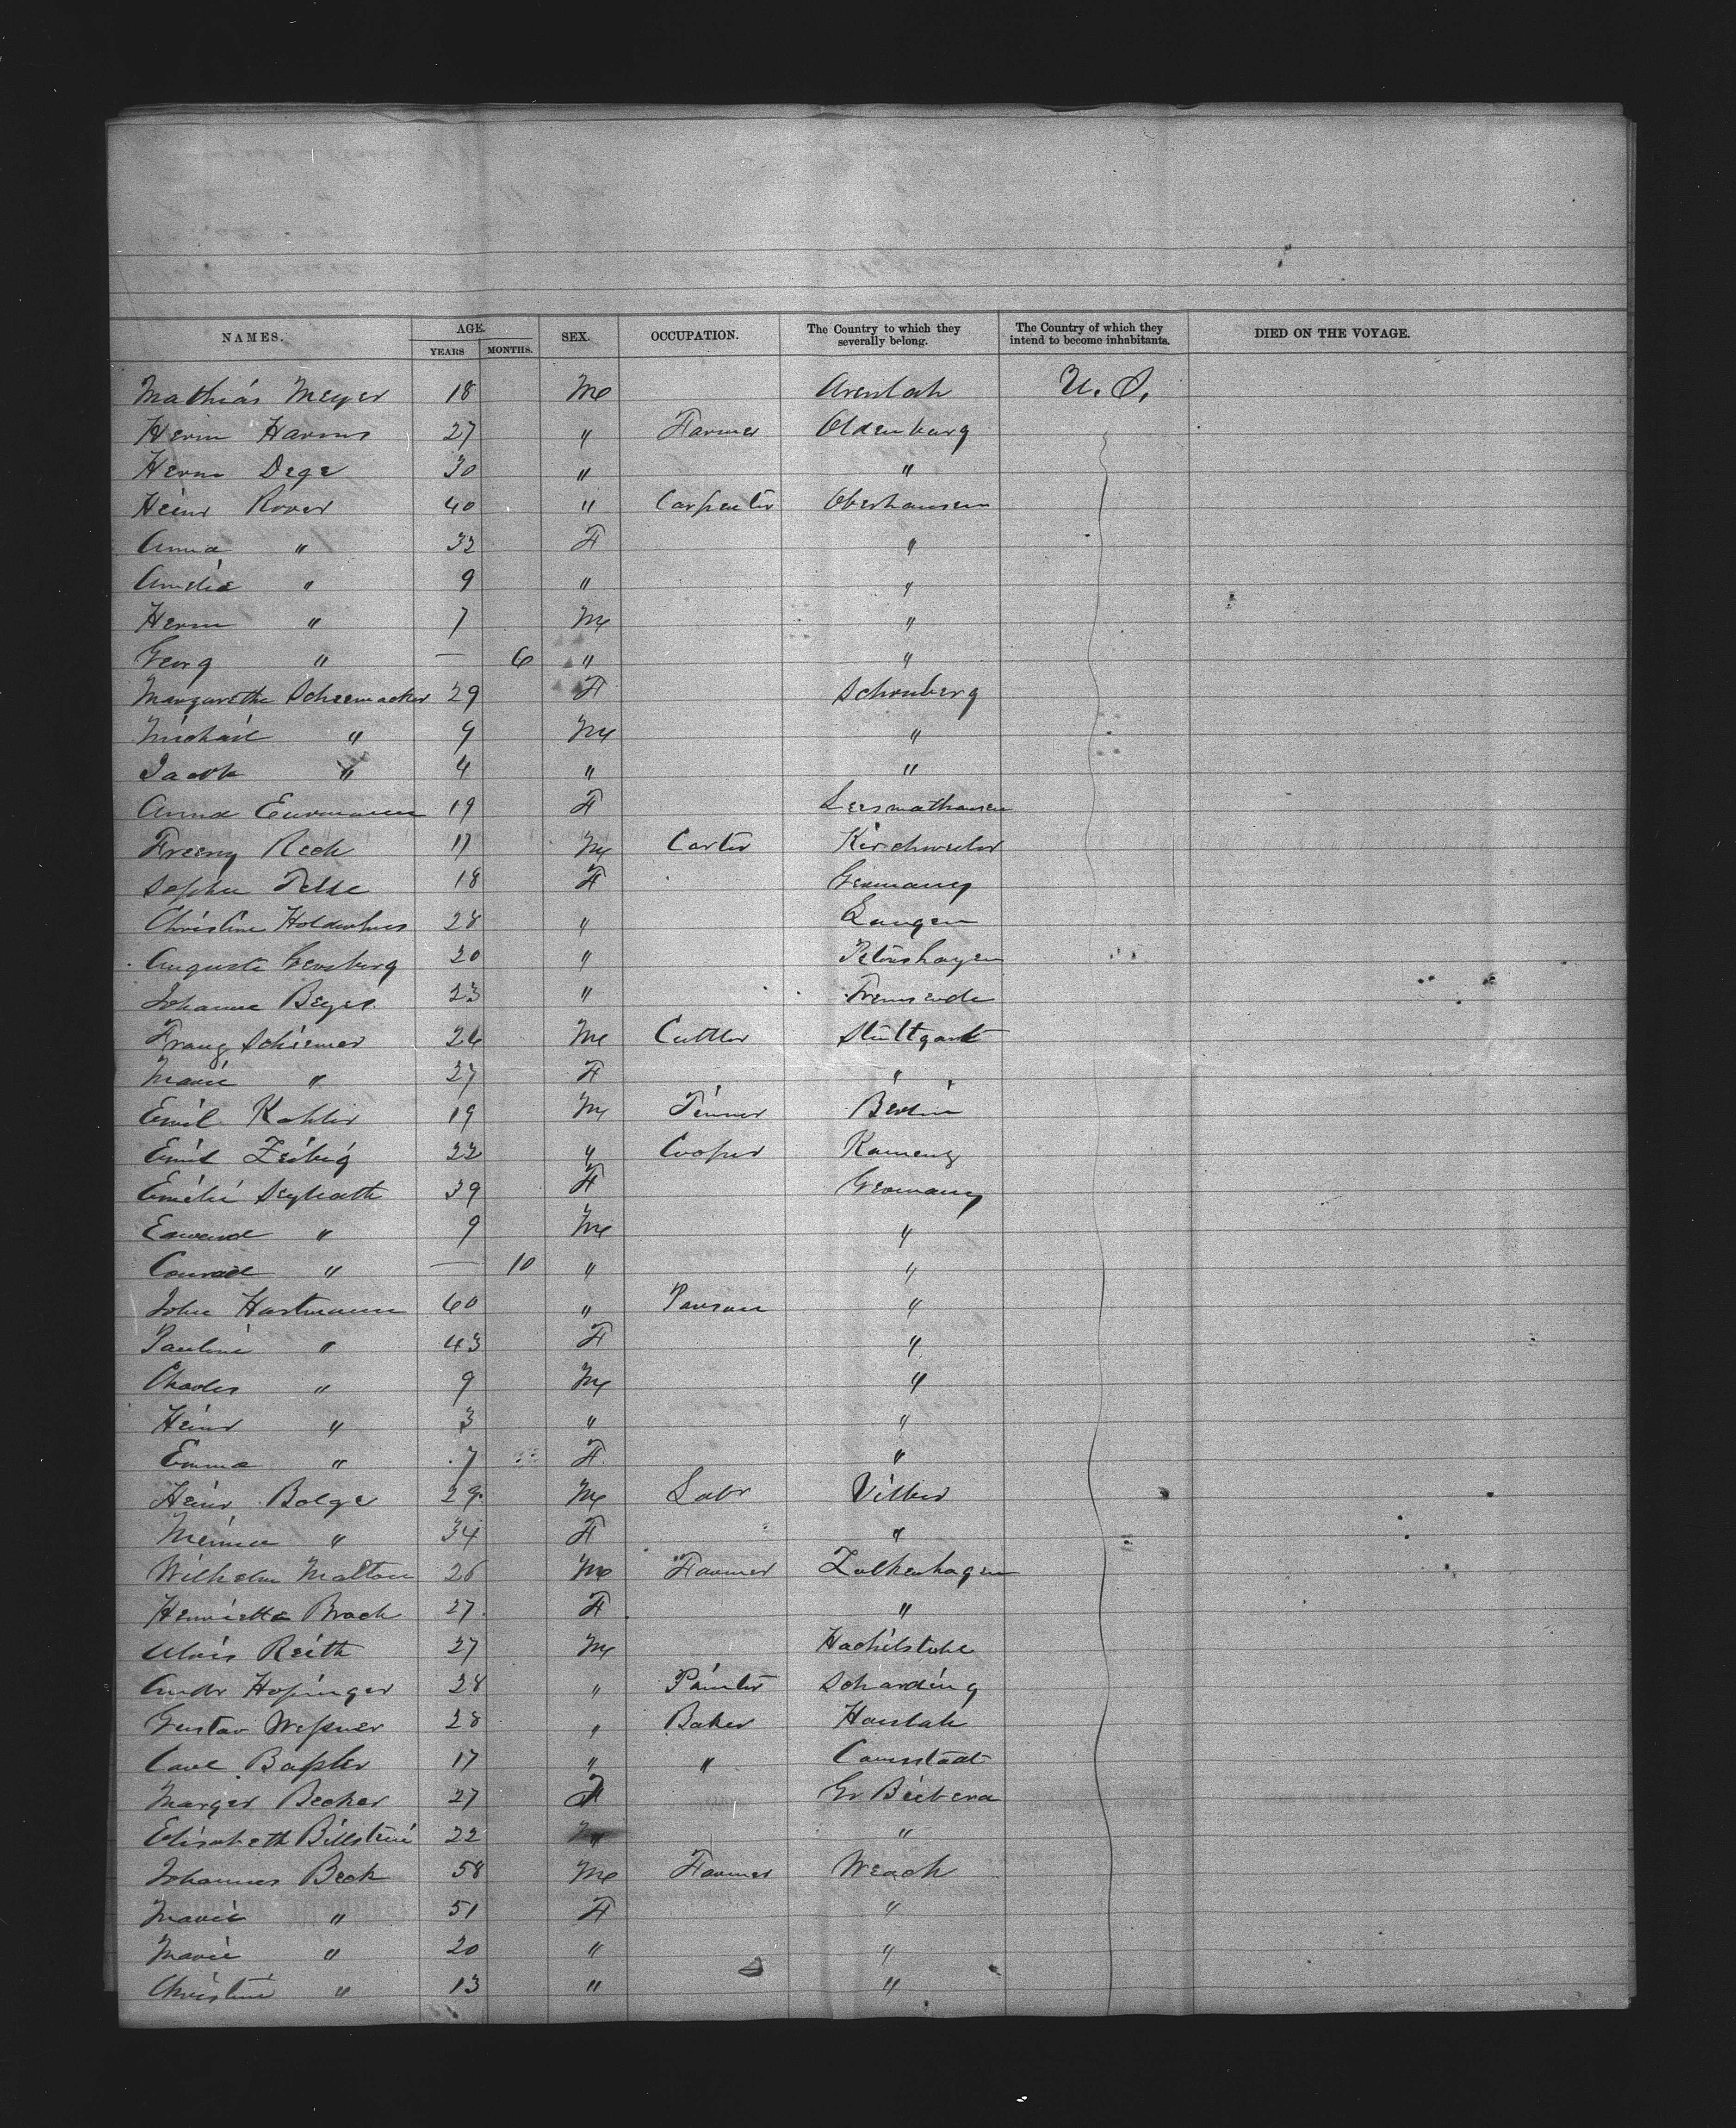 NAMES. AGE. YEARS MONTHS. SEX. OCCUPATION. The Country to which they severally belong. The Country of which they intend to become inhabitants. DIED ON THE VOYAGE.
Mathias Meyer 18 M U. S.
Herm Harms 27 " Farmer Oldenburg
Herm Dege 30 " "
Heinr Rover 40 " Carpenter Oberhausen
Anna " 32 F "
Amelie " 9 " "
Herm " 7 M "
Georg " — 6 " "
Margarethe Scheemacker 29 F Schonberg
Michael " 9 M "
Jacob " 4 " "
Anna 19 F
Reck 17 M Carter Kirchweiler
Sophie 18 F Germany
Christine 28 " Langen
Auguste 20 " Petershagen
Johanne Beyer 23 "
Franz Schiemer 26 M Cuttler Stuttgart
Marie " 27 F "
Emil Kohler 19 M Tinner Berlin
Emil Zeibig 22 " Cooper Kamenz
Emilie 39 F Germany
" 9 M "
Conrad " — 10 " "
John Hartmann 60 " "
Pauline " 43 F "
Charles " 9 M "
Heinr " 3 " "
Emma " 7 F "
Heinr Bolge 29 M Labr
" 34 F "
Wilhelm Maltan 26 M Farmer
Henriette Brock 27 F "
Alois Reith 27 M
Andr Hosinger 28 " Painter Scharding
Gustav Weßner 28 " Baker
Carl Baßler 17 " " Cannstadt
Marger Becker 27 F Gr Biebera
Elisabeth Billstein 22 " "
Johannes Beck 58 M Farmer
Marie " 51 F "
Marie " 20 " "
Christine " 13 " "